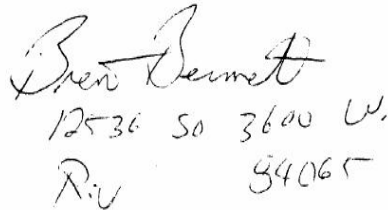 Brent Bennett
12536 So 3600 W.
Riv 84065